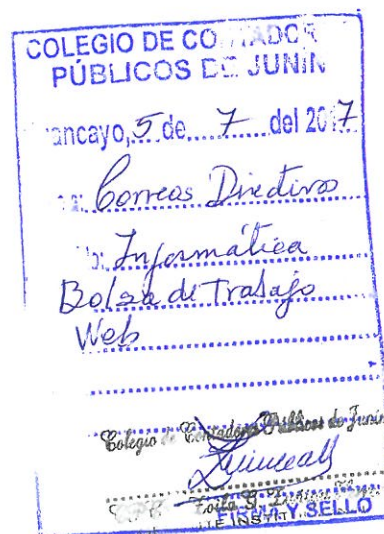 COLEGIO DE CONTADORES
PÚBLICOS DE JUNIN
ancayo, 5 de 7 del 2017
Correos Directivos
Informática
Bolsa de Trabajo
Web
Colegio de Contadores Públicos de Junín
FIRMA Y SELLO